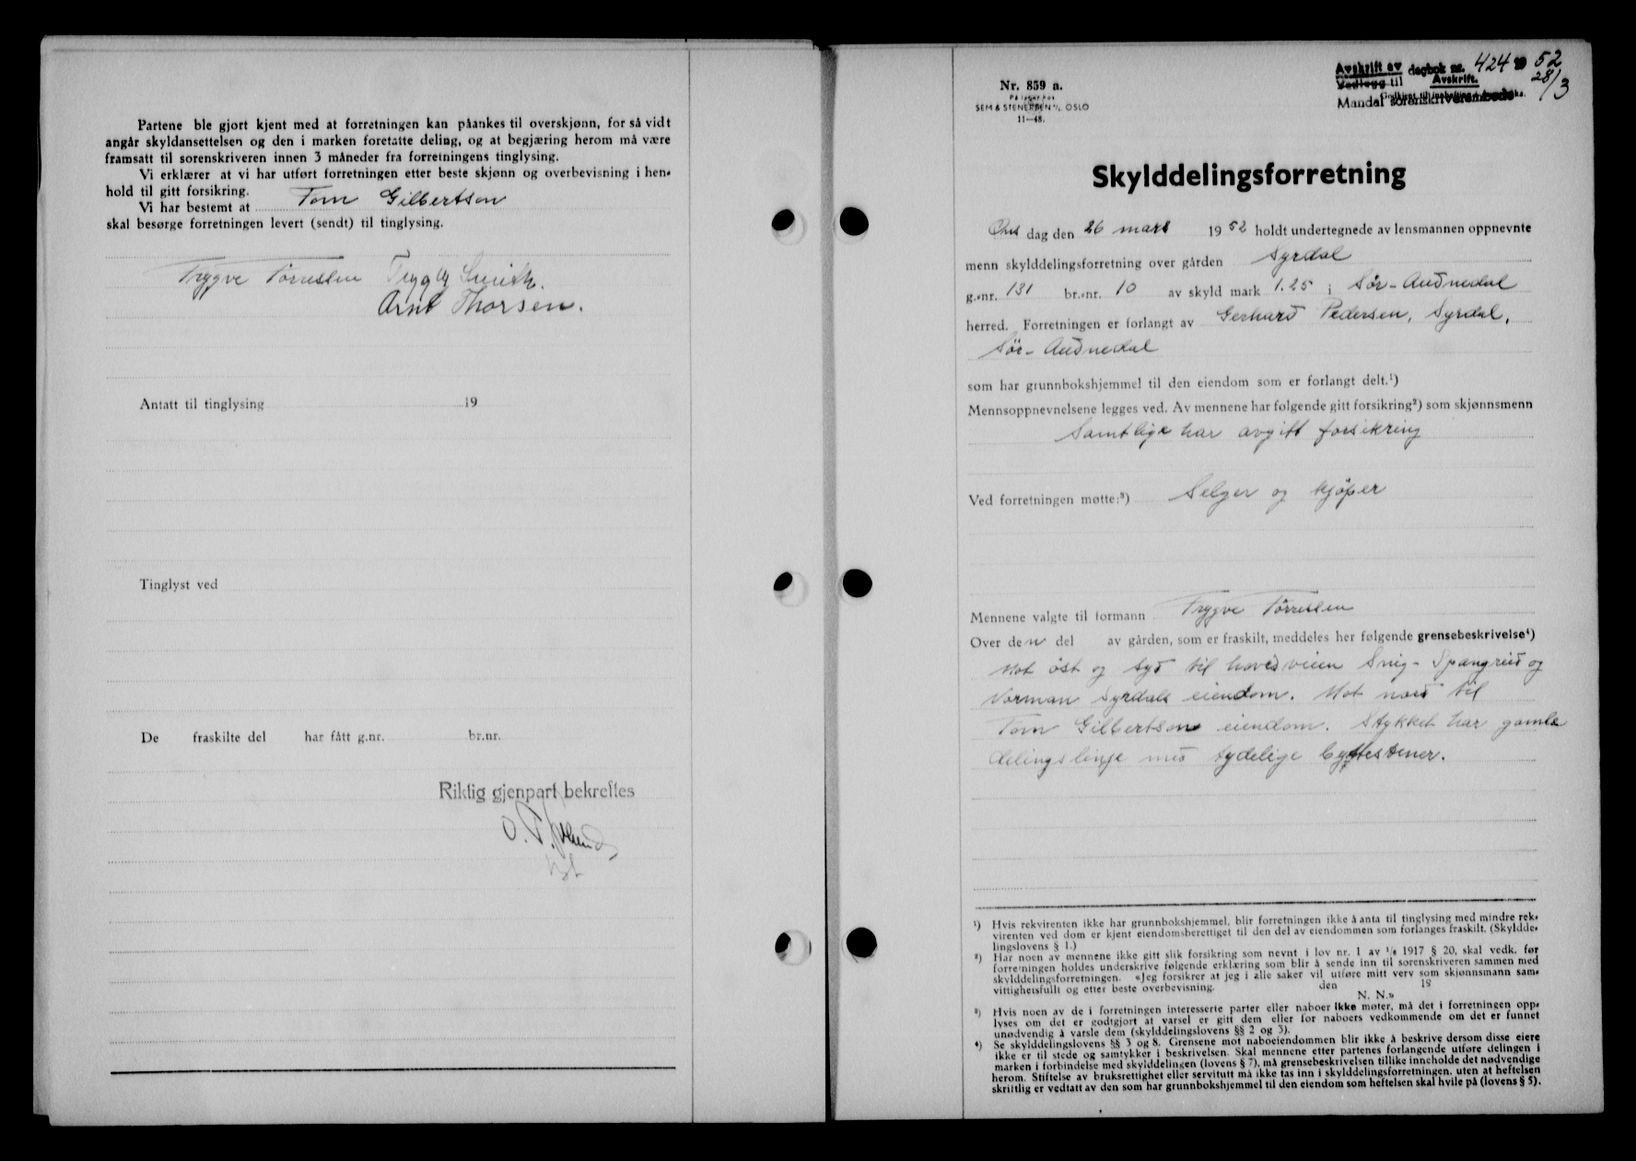 Partene ble gjort kjent med at forretningen kan påankes til overskjønn, for så vidt
angår skyldansettelsen og den i marken foretatte deling, og at begjæring herom må være
framsatt til sorenskriveren innen 3 måneder fra forretningens tinglysing.
Vi erklærer at vi har utført forretningen etter beste skjønn og overbevisning i hen-
hold til gitt forsikring.
Vi har bestemt at Tom Gilbertson
skal besørge forretningen levert (sendt) til tinglysing.
Trygve Tørressen Smith.
Arnt Thorsen.
Antatt til tinglysing 19
Tinglyst ved
De fraskilte del har fått g.nr. br.nr.
Riktig gjenpart bekreftes
Avskrift av dagbok nr. 424 19 52
Vedlegg til Avskrift. 28/3
Mandal sorenskriverembede
Nr. 859 a.
SEM & STENERSEN A/S, OSLO
11—48.
Skylddelingsforretning
Ons dag den 26 mars 19 52 holdt undertegnede av lensmannen oppnevnte
menn skylddelingsforretning over gården Syrdal
g.nr. 131 br.nr. 10 av skyld mark 1.25 i Sør-Audnedal
herred. Forretningen er forlangt av Gerhard Pedersen, Syrdal,
Sør-Audnedal
som har grunnbokshjemmel til den eiendom som er forlangt delt.¹)
Mennsoppnevnelsene legges ved. Av mennene har følgende gitt forsikring²) som skjønnsmenn
Samtlige har avgitt forsikring
Ved forretningen møtte:³) Selger og kjøper
Mennene valgte til formann Trygve Tørressen
Over den del av gården, som er fraskilt, meddeles her følgende grensebeskrivelse⁴)
Mot øst og syd til hovedveien Snig - Spangreid og
Norman Syrdals eiendom. Mot nord til
Tom Gilbertsons eiendom. Stykket har gamle
delingslinje med tydelige byttestener.
¹) Hvis rekvirenten ikke har grunnbokshjemmel, blir forretningen ikke å anta til tinglysing med mindre rek-
virenten ved dom er kjent eiendomsberettiget til den del av eiendommen som forlanges fraskilt. (Skyldde-
lingslovens § 1.)
²) Har noen av mennene ikke gitt slik forsikring som nevnt i lov nr. 1 av 1/6 1917 § 20, skal vedk. før
forretningen holdes underskrive følgende erklæring som blir å sende inn til sorenskriveren sammen med
skylddelingsforretningen. «Jeg forsikrer at jeg i alle saker vil utføre mitt verv som skjønnsmann sam-
vittighetsfullt og etter beste overbevisning. den 19
N. N.»
³) Hvis noen av de i forretningen interesserte parter eller naboer ikke møter, må det i forretningen opp-
lyses om det er godtgjort at varsel er gitt dem eller for naboers vedkommende om det er funnet
unødvendig å varsle dem (skylddelingslovens §§ 2 og 3).
⁴) Se skylddelingslovens §§ 3 og 8. Grensene mot naboeiendommen blir ikke å beskrive dersom disse eiere
ikke er til stede og samtykker i beskrivelsen. Skal mennene etter partenes forlangende utføre delingen i
marken i forbindelse med skylddelingen (lovens § 7), må grensebeskrivelsen tillike inneholde det nødvendige
herom. Stiftelse av bruksrettighet eller servitutt må ikke tas inn i skylddelingsforretningen, uten at heftelsen
skriftlig er vedtatt av den som har grunnbokshjemmel til den eiendom som heftelsen skal hvile på (lovens § 5).